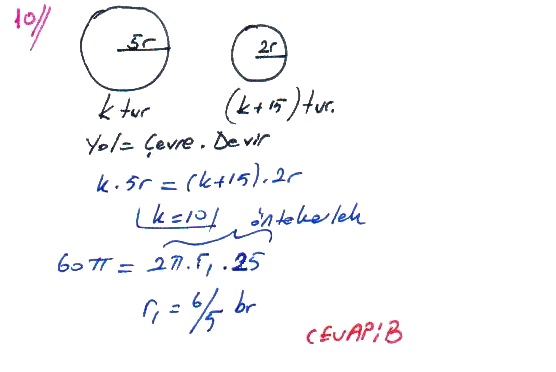 10//
5r 2r
k tur (k+15) tur.
Yol = Çevre . Devir
k . 5r = (k+15) . 2r
k=10 öntekerlek
60π = 2π . r₁ . 25
r₁ = 6/5 br
CEVAP: B